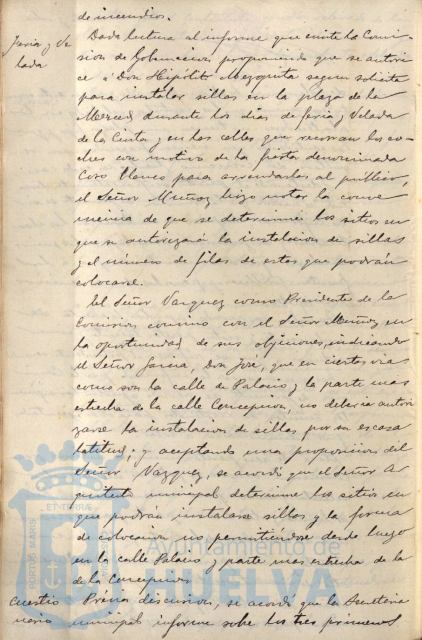 de incendios.
Feria y Ve
lada
Dada lectura al informe que emite la Comi-
sion de Gobernacion proponiendo que se autori
ce á Don Hipólito Mezquita segun solicita
para instalar sillas en la plaza de la
Merced durante los dias de feria y Velada
de la Cinta y en las calles que recorran los co-
ches con motivo de la fiesta denominada
Coso blanco para arrendarlas al publico,
el Señor Muñoz hizo notar la conve
niencia de que se determinen los sitios en
que se autorizará la instalacion de sillas
y el número de filas de estas que podrán
colocarse.
El Señor Vazquez como Presidente de la
Comision convino con el Señor Muñoz en
la oportunidad de sus objeciones, indicando
el Señor Garcia, Don José, que en ciertas vias
como son la calle de Palacio y la parte mas
estrecha de la calle Concepcion, no deberia autori
zarse la instalacion de sillas por su escasa
latitud; y aceptando una proposicion del
Señor Vazquez, se acordó que el Señor Ar
quitecto municipal determine los sitios en
que podrán instalarse sillas y la forma
de colocarlas no permitiendose desde luego
en la calle Palacio y parte mas estrecha de la
de la Concepcion.
Previa discusion, se acordó que la
municipal informe sobre los tres primeros
ET TERRÆ
PORTUS MARIS
Ayuntamiento de
HUELVA